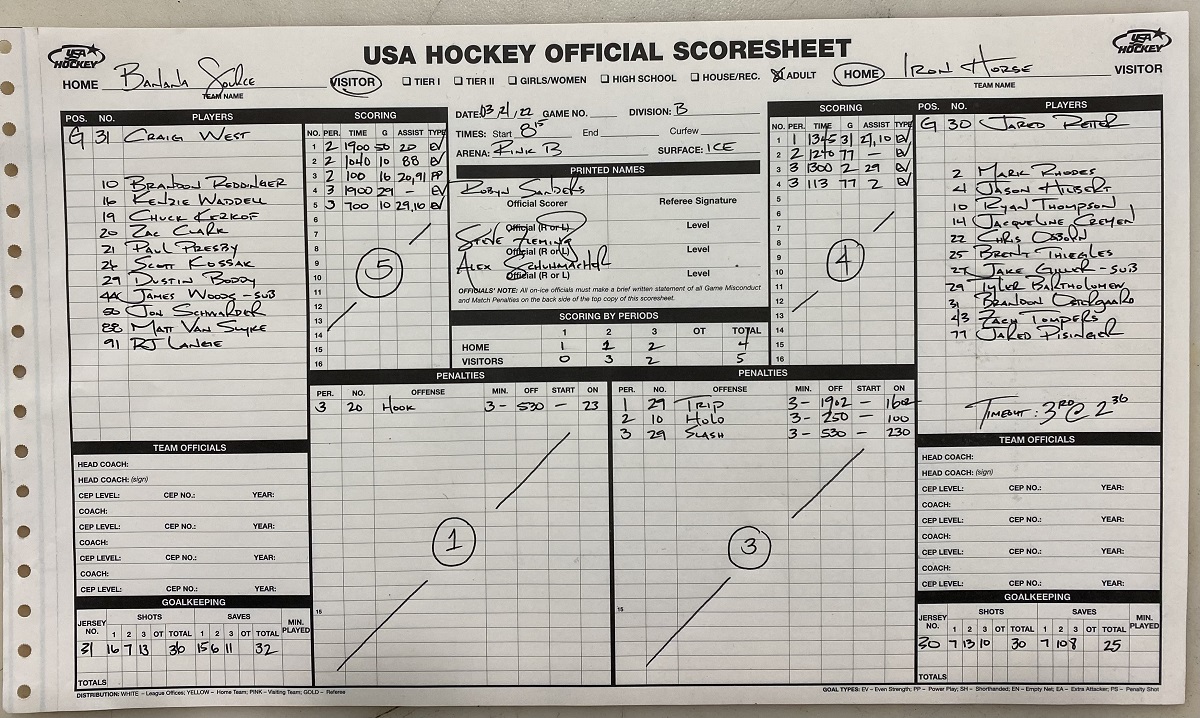 USA HOCKEY OFFICIAL SCORESHEET
USA HOCKEY
USA HOCKEY
HOME Banana Sauce VISITOR
TEAM NAME
TIER I TIER II GIRLS/WOMEN HIGH SCHOOL HOUSE/REC. ADULT
HOME Iron Horse VISITOR
TEAM NAME
POS. NO. PLAYERS
G 31 Craig West
10 Brandon Reddinger
16 Kenzie Waddell
19 Chuck Kerkof
20 Zac Clark
21 Paul Presby
26 Scott Kossak
29 Dustin Boddy
44 James Woods - sub
50 Jon Schwarder
88 Matt Van Slyke
91 RJ Lange
SCORING
NO. PER. TIME G ASSIST TYPE
1 2 1900 50 20 EV
2 2 1040 10 88 EV
3 2 100 16 20,91 PP
4 3 1900 29 - EV
5 3 700 10 29,10 EV
6
7
8
9
10
11
12
13
14
15
16
5
DATE: 03/21/22 GAME NO. DIVISION: B
TIMES: Start 8 15 End Curfew
ARENA: Rink B SURFACE: ICE
PRINTED NAMES
Robyn Sanders
Official Scorer Referee Signature
Official (R or L) Level
Steve Fleming
Official (R or L) Level
Alex Schuhmacher
Official (R or L) Level
OFFICIALS' NOTE: All on-ice officials must make a brief written statement of all Game Misconduct
and Match Penalties on the back side of the top copy of this scoresheet.
SCORING BY PERIODS
1 2 3 OT TOTAL
HOME 1 1 2 4
VISITORS 0 3 2 5
SCORING
NO. PER. TIME G ASSIST TYPE
1 1 1345 31 29,10 EV
2 2 1270 77 - EV
3 3 1300 2 29 EV
4 3 113 77 2 EV
5
6
7
8
9
10
11
12
13
14
15
16
4
POS. NO. PLAYERS
G 30 Jared Reiter
2 Mark Rhodes
4 Jason Hilbert
10 Ryan Thompson
14 Jacqueline Cremen
22 Chris Osborn
25 Brent Thiegles
27 Jake - sub
29 Tyler Bartholomew
31 Brandon
43 Zach Tompers
77 Jared Pisinger
Timeout: 3rd @ 2 36
PENALTIES
PER. NO. OFFENSE MIN. OFF START ON
3 20 Hook 3- 530 - 23
15
1
PENALTIES
PER. NO. OFFENSE MIN. OFF START ON
1 29 Trip 3- 1902 - 1602
2 10 Hold 3- 250 - 100
3 29 Slash 3- 530 - 230
15
3
TEAM OFFICIALS
HEAD COACH:
HEAD COACH: (sign)
CEP LEVEL: CEP NO.: YEAR:
COACH:
CEP LEVEL: CEP NO.: YEAR:
COACH:
CEP LEVEL: CEP NO.: YEAR:
COACH:
CEP LEVEL: CEP NO.: YEAR:
GOALKEEPING
JERSEY NO. SHOTS SAVES MIN. PLAYED
1 2 3 OT TOTAL 1 2 3 OT TOTAL
31 16 7 13 36 15 6 11 32
TOTALS
TEAM OFFICIALS
HEAD COACH:
HEAD COACH: (sign)
CEP LEVEL: CEP NO.: YEAR:
COACH:
CEP LEVEL: CEP NO.: YEAR:
COACH:
CEP LEVEL: CEP NO.: YEAR:
COACH:
CEP LEVEL: CEP NO.: YEAR:
GOALKEEPING
JERSEY NO. SHOTS SAVES MIN. PLAYED
1 2 3 OT TOTAL 1 2 3 OT TOTAL
30 7 13 10 30 7 10 8 25
TOTALS
DISTRIBUTION: WHITE – League Offices; YELLOW – Home Team; PINK – Visiting Team; GOLD – Referee
GOAL TYPES: EV – Even Strength; PP – Power Play; SH – Shorthanded; EN – Empty Net; EA – Extra Attacker; PS – Penalty Shot